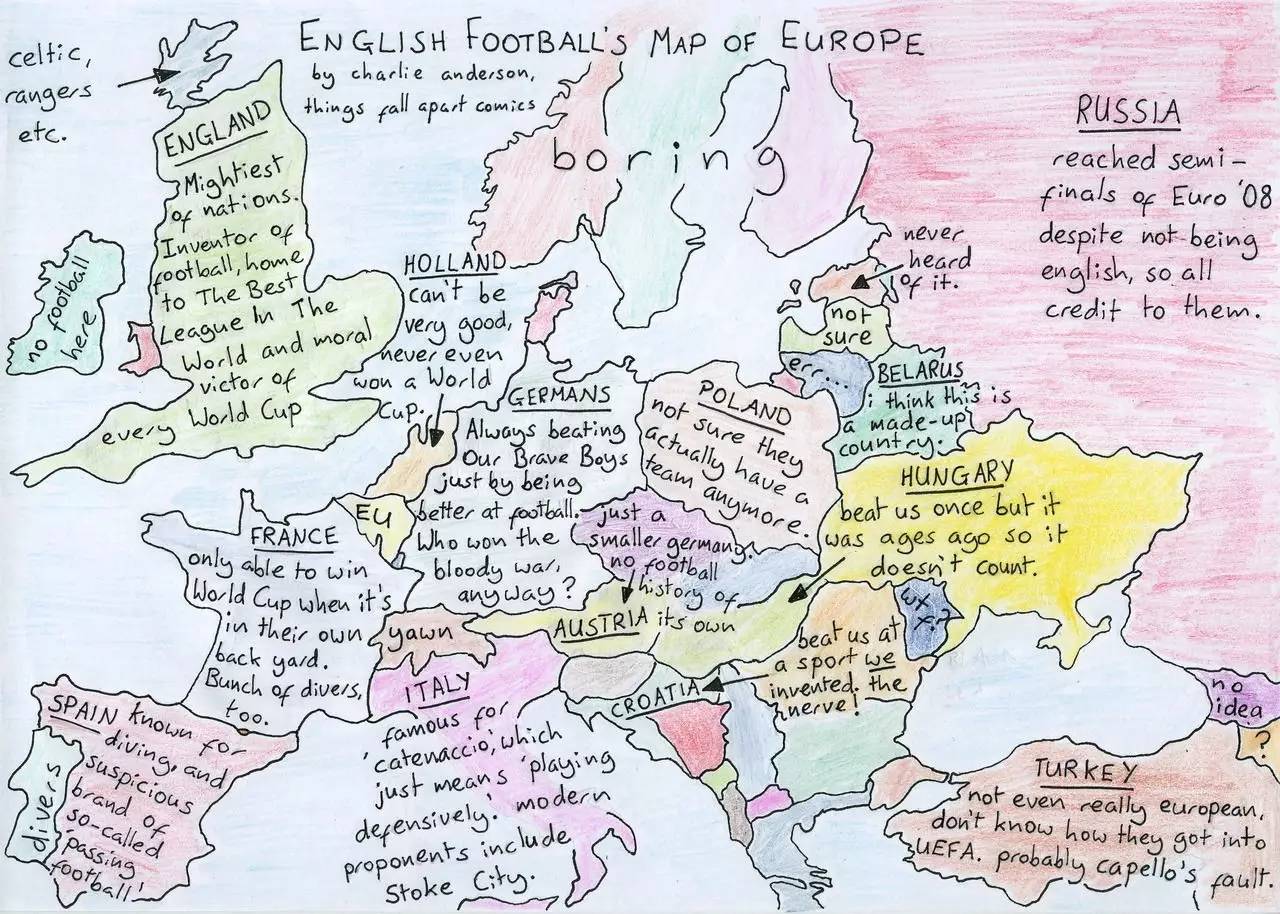 ENGLISH FOOTBALL'S MAP OF EUROPE
by charlie anderson,
things fall apart comics
celtic,
rangers
etc.
ENGLAND
Mightiest
of nations.
Inventor of
football, home
to The Best
League In The
World and moral
victor of
every World Cup
no football
here
boring
RUSSIA
reached semi-
finals of Euro '08
despite not being
english, so all
credit to them.
never
heard
of it.
not
sure
err...
BELARUS
i think this is
a made-up
country.
HOLLAND
can't be
very good,
never even
won a World
Cup.
GERMANS
Always beating
Our Brave Boys
just by being
better at football.
Who won the
bloody war,
anyway?
POLAND
not sure they
actually have a
team anymore.
HUNGARY
beat us once but it
was ages ago so it
doesn't count.
EU
FRANCE
only able to win
World Cup when it's
in their own
back yard.
Bunch of divers,
too.
just a
smaller germany.
no football
history of
AUSTRIA its own
wtf?
yawn
beat us at
a sport we
invented. the
nerve!
CROATIA
ITALY
famous for
'catenaccio', which
just means 'playing
defensively.' modern
proponents include
Stoke City.
SPAIN known for
diving, and
suspicious
brand of
so-called
'passing
football'
divers
no
idea
?
TURKEY
not even really european,
don't know how they got into
UEFA. probably capello's fault.